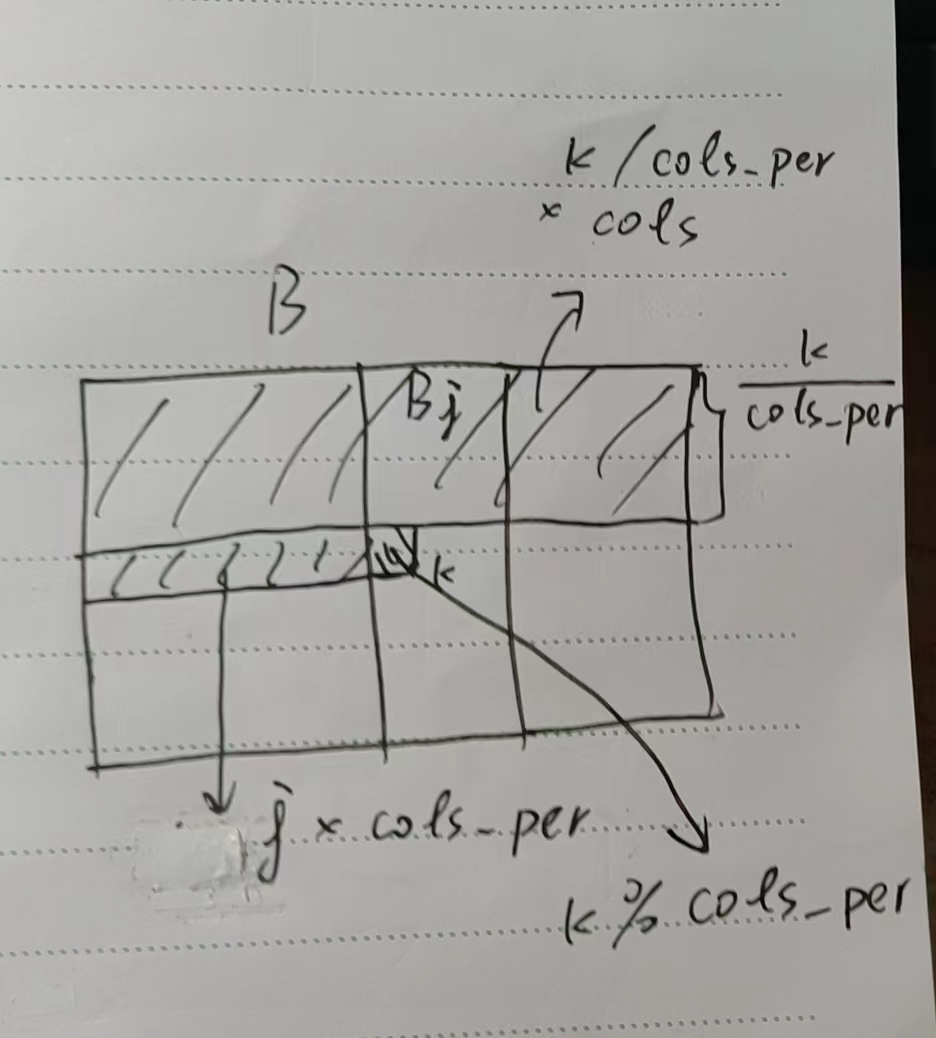 k / cols_per
× cols
B
k
cols_per
Bj
k
j × cols_per
k % cols_per